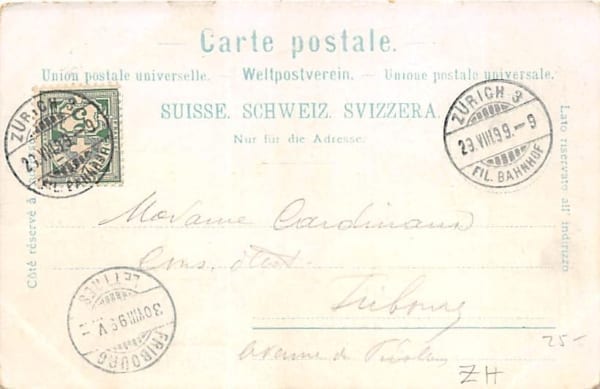 Carte postale.
Union postale universelle. — Weltpostverein. — Unione postale universale.
SUISSE. SCHWEIZ. SVIZZERA.
Nur für die Adresse.
Côté réservé à
Lato riservato all' indirizzo
ZÜRICH 3
29.VIII.99.-9
FIL. BAHNHOF
ZÜRICH 3
29.VIII.99.-9
FIL. BAHNHOF
Madame Cardinaux
Cons. d'Etat
Fribourg
avenue de Pérolles
FRIBOURG
30.VIII.99.V
LETTRES
25-
ZH